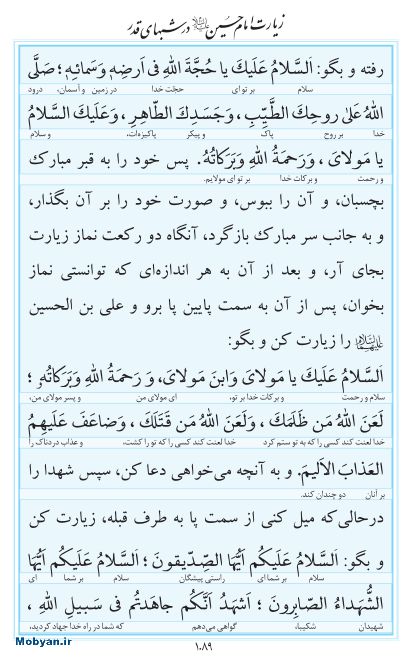 زیارت امام حسین علیه‌السلام در شبهای قدر
رفته و بگو: اَلسَّلامُ عَلَيكَ يا حُجَّةَ اللهِ في اَرضِهِ وَسَمائِهِ ؛ صَلَّى
سلام بر تو ای حجّت خدا در زمین و آسمان، درود
اللهُ عَلىٰ روحِكَ الطَّيِّبِ ، وَجَسَدِكَ الطّاهِرِ ، وَعَلَيكَ السَّلامُ
خدا بر روح پاک و پیکر پاکیزه‌ات، و سلام
يا مَولايَ ، وَرَحمَةُ اللهِ وَبَرَكاتُهُ. پس خود را به قبر مبارک
و رحمت و برکات خدا بر تو ای مولایم.
بچسبان، و آن را ببوس، و صورت خود را بر آن بگذار،
و به جانب سر مبارک بازگرد، آنگاه دو رکعت نماز زیارت
بجای آر، و بعد از آن به هر اندازه‌ای که توانستی نماز
بخوان، پس از آن به سمت پایین پا برو و علی بن الحسین
علیهماالسلام را زیارت کن و بگو:
اَلسَّلامُ عَلَيكَ يا مَولايَ وَابنَ مَولايَ، وَ رَحمَةُ اللهِ وَبَرَكاتُهُ ؛
سلام و رحمت و برکات خدا بر تو، ای مولای من و پسر مولای من،
لَعَنَ اللهُ مَن ظَلَمَكَ ، وَلَعَنَ اللهُ مَن قَتَلَكَ ، وَضاعَفَ عَلَيهِمُ
خدا لعنت کند کسی را که به تو ستم کرد خدا لعنت کند کسی را که تو را کشت، و عذاب دردناک را
العَذابَ الاَليمَ. و به آنچه می‌خواهی دعا کن، سپس شهدا را
بر آنان دو چندان کند.
درحالی‌که میل کنی از سمت پا به طرف قبله، زیارت کن
و بگو: اَلسَّلامُ عَلَيكُم اَيُّهَا الصِّدّيقونَ ؛ اَلسَّلامُ عَلَيكُم اَيُّهَا
سلام بر شما ای راستی پیشگان سلام بر شما ای
الشُّهَداءُ الصّابِرونَ ؛ اَشهَدُ اَنَّكُم جاهَدتُم في سَبيلِ اللهِ ،
شهیدان شکیبا، گواهی می‌دهم که شما در راه خدا جهاد کردید،
۱۰۸۹
Mobyan.ir